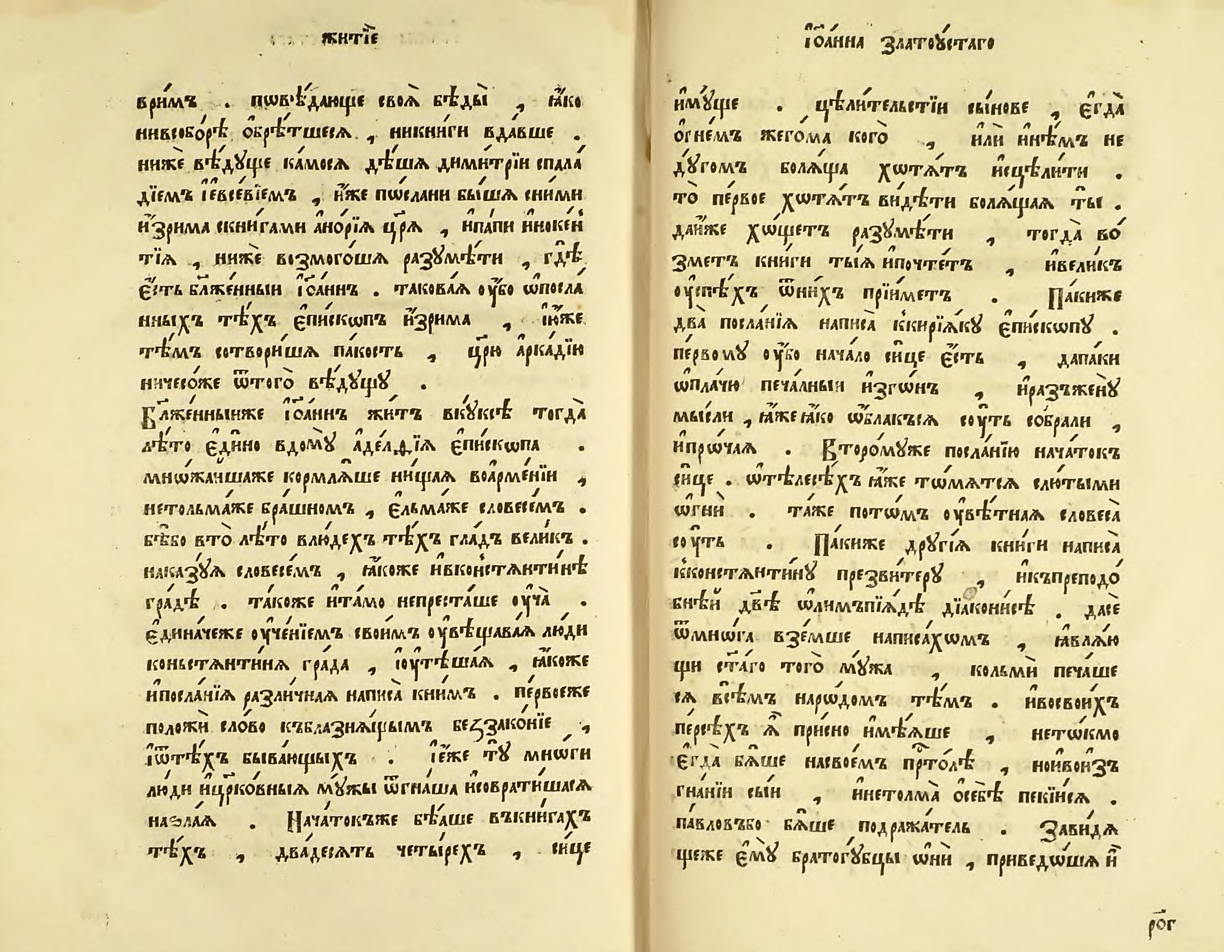 житїѐ
ври́мъ . пѡвѣ́дающе своѧ̀ бѣды̀ , ꙗ҆́ко
нивсобо́рѣ ѻ҆брѣ́тшесѧ , никни́ги вда́вше .
нижѐ вѣ́дꙋще ка́мосѧ дѣ́шѧ дими́трїи спала́
дїемъ і҆евсе́вїемъ , и҆́же пѡслани бы́шѧ сни́ми
и҆зри́ма скни́гами а҆но́рїѧ цр҃ѧ̀ , и҆па́пи и҆ноке́н
тїѧ , нижѐ возмого́шѧ разꙋмѣ́ти , гдѣ̀
є҆́сть бл҃же́нныи і҆ѡ҃а́ннъ . такова́ѧ ѹ҆́бо ѿпосла
нныхъ тѣ́хъ є҆пи́скѡпъ и҆зри́ма , ю҆́же
тѣ́мъ сотвори́шѧ па́кость , цр҃ю̀ а҆рка́дїю
ничесо́же ѿтого̀ вѣ́дꙋщꙋ .
Бл҃же́нныиже і҆ѡ҃а́ннъ жи́тъ вкꙋ́ксѣ тогда̀
лѣ́то є҆ди́но вдомꙋ̀ а҆де́лфїѧ є҆пи́скѡпа .
мнѡжа́ишаже кормлѧ́ше ни́щаѧ воа҆рме́нїи ,
нетольма́же бра́шномъ , є҆льма́же словесе́мъ .
бѣ́бо вто̀ лѣ́то влю́дехъ тѣ́хъ гла́дъ вели́къ .
наказꙋ́ѧ словесе́мъ , ꙗ҆́коже и҆вконстѧнти́нѣ
гра́дѣ . та́коже и҆та́мо непреста́ше ѹ҆ча̀ .
є҆дина́чеже ѹ҆че́нїемъ свои́мъ ѹ҆вѣщава́ѧ лю́ди
коньстѧнти́нѧ гра́да , і҆ѹ҆тѣша́ѧ , ꙗ҆́коже
и҆посла́нїѧ разли́чнаѧ написа̀ кни́мъ . пе́рвоеже
положѝ сло́во къблазнѧ́щымъ беззако́нїе ,
і҆ѿтѣ́хъ быва́ющыхъ . і҆е҆́же тꙋ̀ мнѡ́ги
лю́ди и҆цр҃ко́вныѧ мꙋ́жы ѿгна́ша и҆соврати́шасѧ
назла́ѧ . Нача́токъже бѣ́аше въкни́гахъ
тѣ́хъ , два́десѧть четы́рехъ , си́це
і҆ѡа́нна златоꙋ́стаго
и҆мꙋ́ще . цѣли́тельстїи сы́нове , є҆гда̀
ѻ҆гне́мъ жего́ма кого̀ , и҆лѝ и҆нѣ́мъ не
дꙋ́гомъ болѧ́ща хѡтѧ́тъ и҆сцѣли́ти .
то̀ пе́рвое хѡтѧ́тъ ви́дѣти болѧ́щаѧ ты̀ .
да́иже хѡ́щетъ разꙋмѣ́ти , тогда̀ во́
зметъ кни́ги ты́ѧ и҆почте́тъ , и҆вели́къ
ѹ҆спѣ́хъ ѿни́хъ прїи́метъ . Па́киже
два̀ посла́нїѧ написа̀ ккирїѧ́кꙋ є҆пи́скопꙋ .
пе́рвомꙋ ѹ҆́бо нача́ло си́це є҆́сть , дапа́ки
ѡ҆пла́чю печа́лныи и҆зго́нъ , и҆разъженꙋ̀
мы́сли , ꙗ҆́же ꙗ҆́ко ѡ҆́блакъсѧ сѹ́ть собра́ли ,
и҆прѡ́чаѧ . Второ́мꙋже посла́нїю нача́токъ
си́це . ѡ҆тѣлесѣ́хъ ꙗ҆́же тѡмѧ́тсѧ слю́тыми
ѡ҆гнѝ . та́же пото́мъ ѹ҆вѣ́тнаѧ словеса̀
сѹ́ть . Па́киже дрꙋгі́ѧ кни́ги написа̀
кконстѧнти́нꙋ презви́терꙋ , и҆къпреподо́
бнѣи двѣ̀ ѡ҆лимъпїѧ́дѣ дїа́конисѣ . дасѐ
ѿмнѡ́га взе́мше написа́хомъ , ꙗ҆влѧ́ю
щи ст҃а́го того̀ мꙋ́жа , кольмѝ печа́ше
сѧ всѣ́мъ нарѡ́домъ тѣ́мъ . и҆восвои́хъ
пе́рсѣхъ ѧ҆̀ при́сно и҆мѣ́ѧше , нето́кмо
є҆гда̀ бѧ́ше насвое́мъ прⷭ҇то́лѣ , но́ивоиз
гна́нїи сы́и , и҆нетолма̀ ѡ҆себѣ̀ пекі́исѧ .
па́вловъбо бѧ́ше подража́тель . Зави́дѧ
щеже є҆мꙋ̀ братогꙋ́бцы ѡ҆нѝ , приведѡ́шѧ и҆̀
рѻ҃г